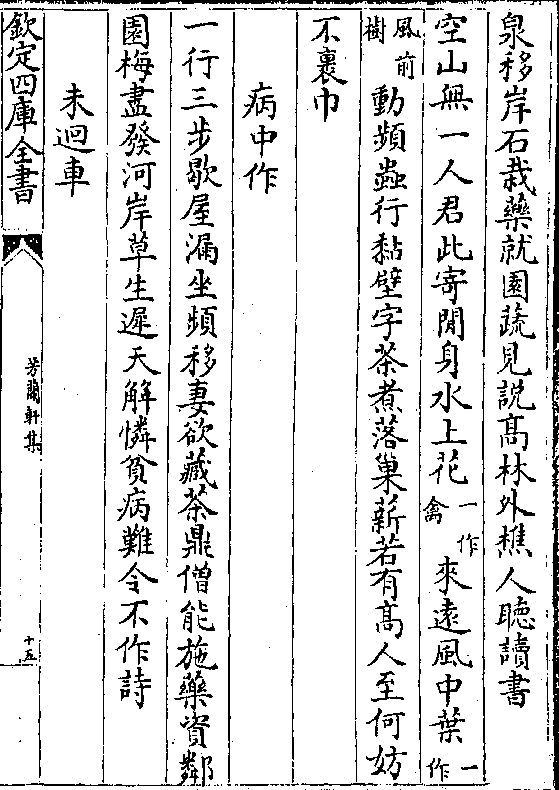 泉移岸石栽藥就園蔬見説髙林外樵人聽讀書
空山無一人君此寄閒身水上花一作禽來遠風中葉一作
風前樹動頻蟲行黏壁字茶煮落巢薪若有髙人至何妨
不裹巾
病中作
一行三步歇屋漏坐頻移妻欲藏茶鼎僧能施藥資鄰
園梅盡發河岸草生遲天解憐貧病難令不作詩
未迴車
欽定四庫全書
芳蘭軒集
十五